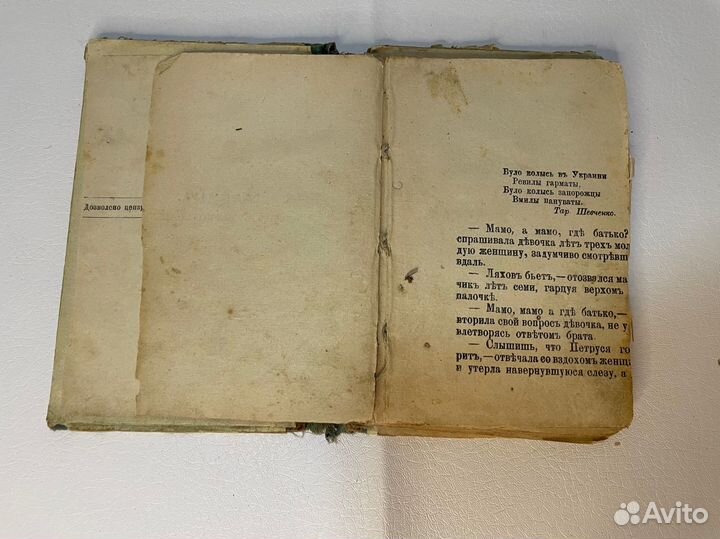 Дозволено ценз
Було колысь въ Украини
Ревилы гарматы,
Було колысь запорожцы
Вмилы пануваты.
Тар. Шевченко.
— Мамо, а мамо, гдѣ батько?
спрашивала дѣвочка лѣтъ трехъ мол
дую женщину, задумчиво смотрѣвш
вдаль.
— Ляховъ бьетъ,—отозвался ма
чикъ лѣтъ семи, гарцуя верхомъ
палочкѣ.
— Мамо, мамо а гдѣ батько,—
вторила свой вопросъ дѣвочка, не у
влетворясь отвѣтомъ брата.
— Слышишь, что Петруся го
ритъ,—отвѣчала со вздохомъ женщ
и утерла навернувшуюся слезу, а
Avito